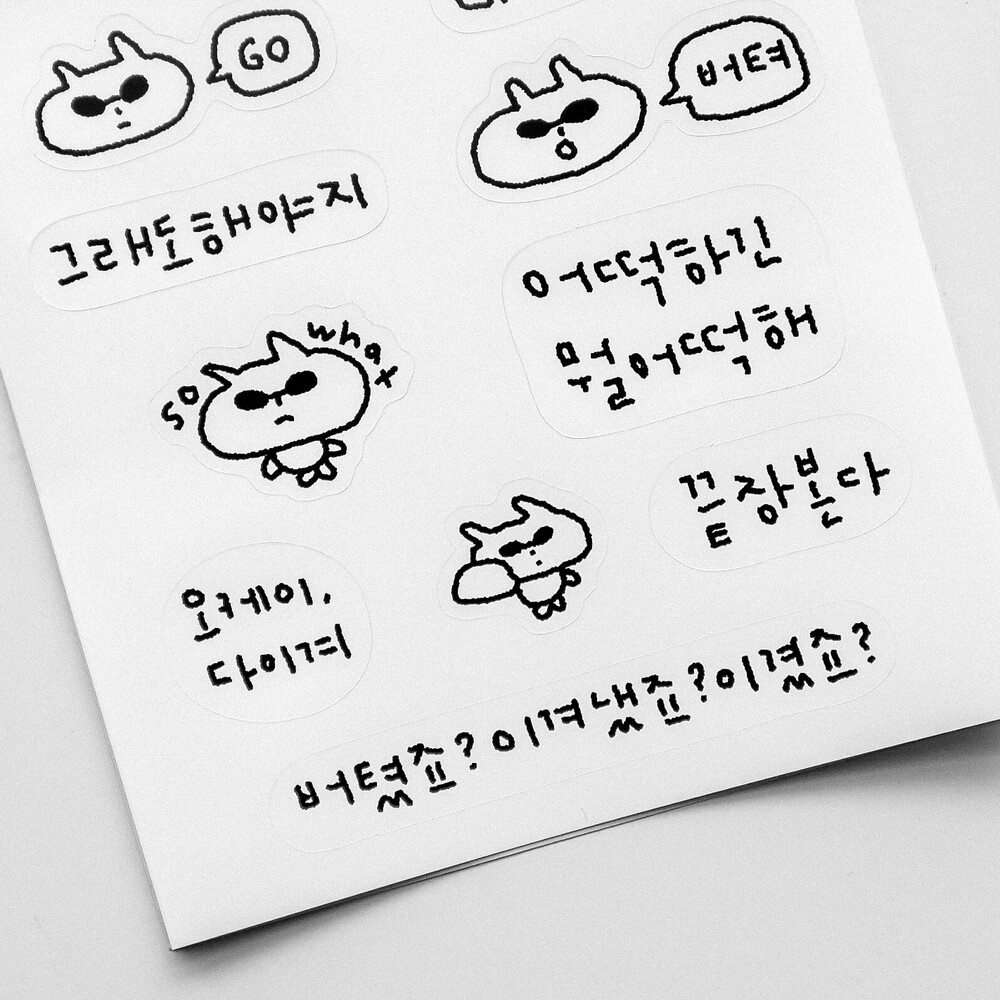 GO
버텨
그래도해야지
어떡하긴
뭘어떡해
so what
끝장본다
오케이,
다이겨
버텼죠?이겨냈죠?이겼죠?